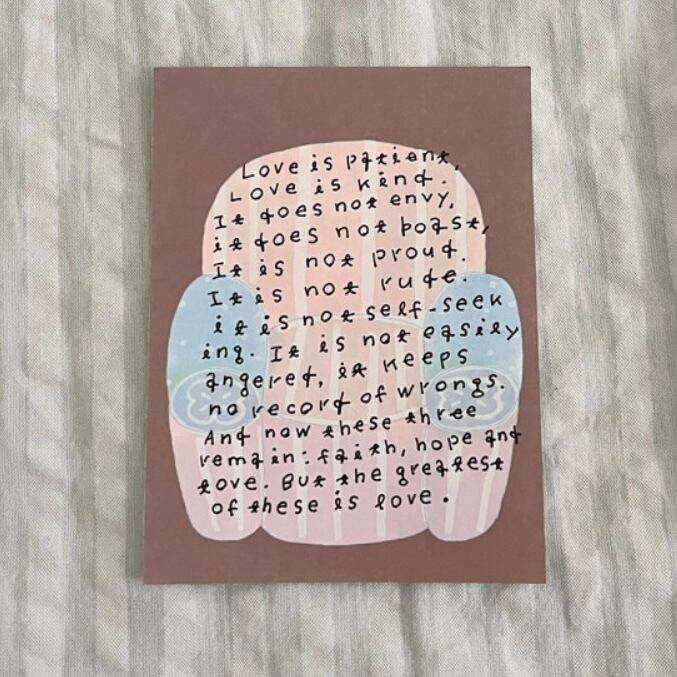 Love is patient,
Love is kind.
It does not envy,
it does not boast,
It is not proud.
It is not rude.
it is not self-seek
ing. It is not easily
angered, it keeps
no record of wrongs.
And now these three
remain: faith, hope and
love. But the greatest
of these is love.